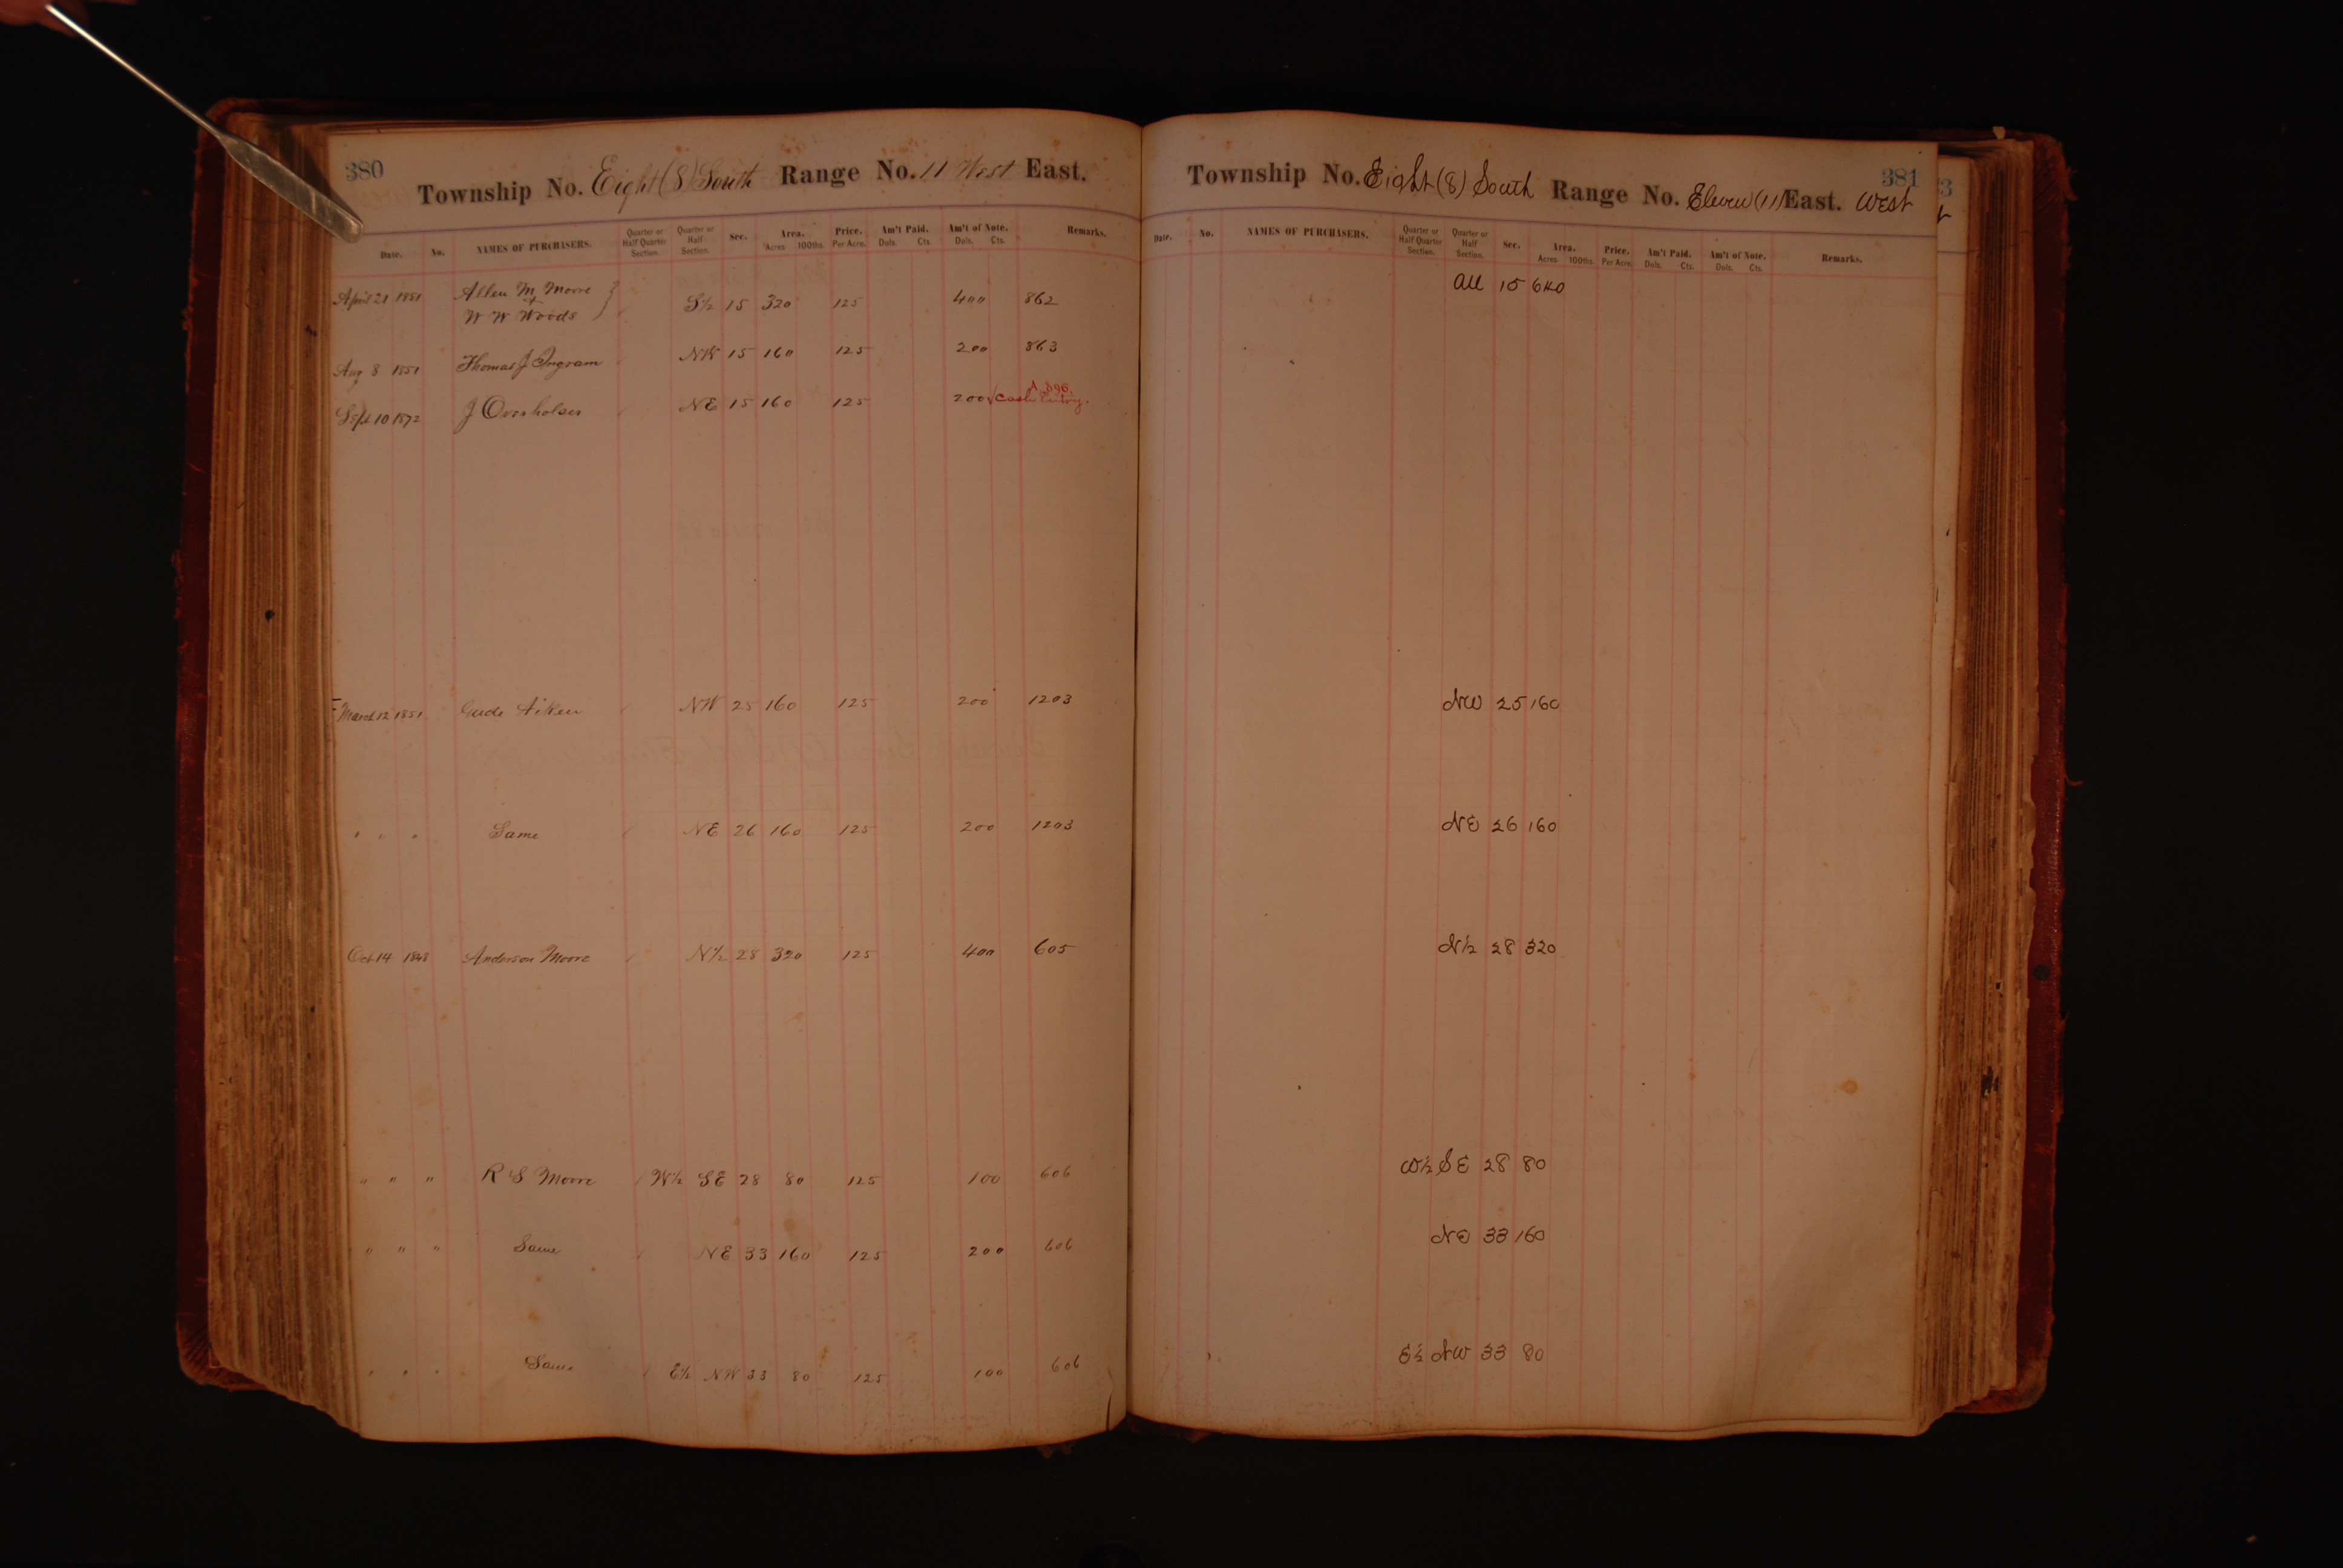 380
Township No. Eight (8) South Range No. 11 West East.
Date. No. NAMES OF PURCHASERS. Quarter or Half Quarter Section. Quarter or Half Section. Sec. Area. Acres 100ths. Price. Per Acre. Am't Paid. Dols. Cts. Am't of Note. Dols. Cts. Remarks.
April 21 1851 Allen M Moore
& W W Woods } S½ 15 320 125 400 862
Aug 8 1851 Thomas J Ingram NW 15 160 125 200 863
Sept 10 1872 J Overholser NE 15 160 125 200 √ Cash Entry. A 896.
March 12 1851 Gude Aiken NW 25 160 125 200 1203
" " " Same NE 26 160 125 200 1203
Oct 14 1848 Anderson Moore N½ 28 320 125 400 605
" " " R S Moore W½ SE 28 80 125 100 606
" " " Same NE 33 160 125 200 606
" " " Same E½ NW 33 80 125 100 606
381
Township No. Eight (8) South Range No. Eleven (11) East. West
Date. No. NAMES OF PURCHASERS. Quarter or Half Quarter Section. Quarter or Half Section. Sec. Area. Acres 100ths. Price. Per Acre. Am't Paid. Dols. Cts. Am't of Note. Dols. Cts. Remarks.
All 15 640
NW 25 160
NE 26 160
N½ 28 320
W½ SE 28 80
NE 33 160
E½ NW 33 80
3